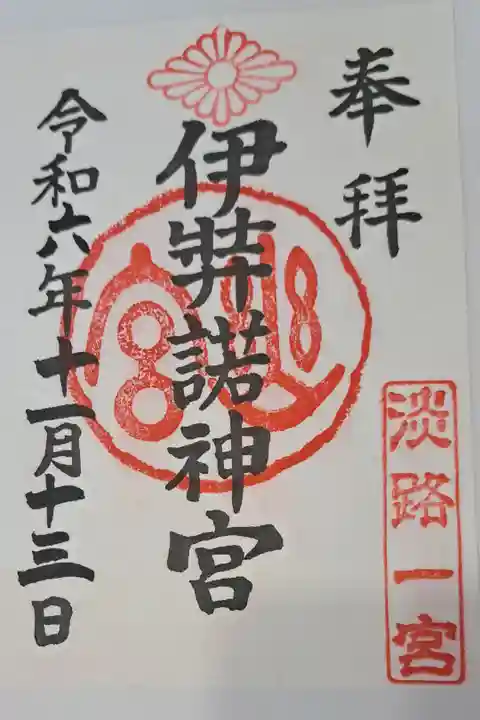 奉拝
淡路一宮
伊弉諾神宮
令和六年十一月十三日